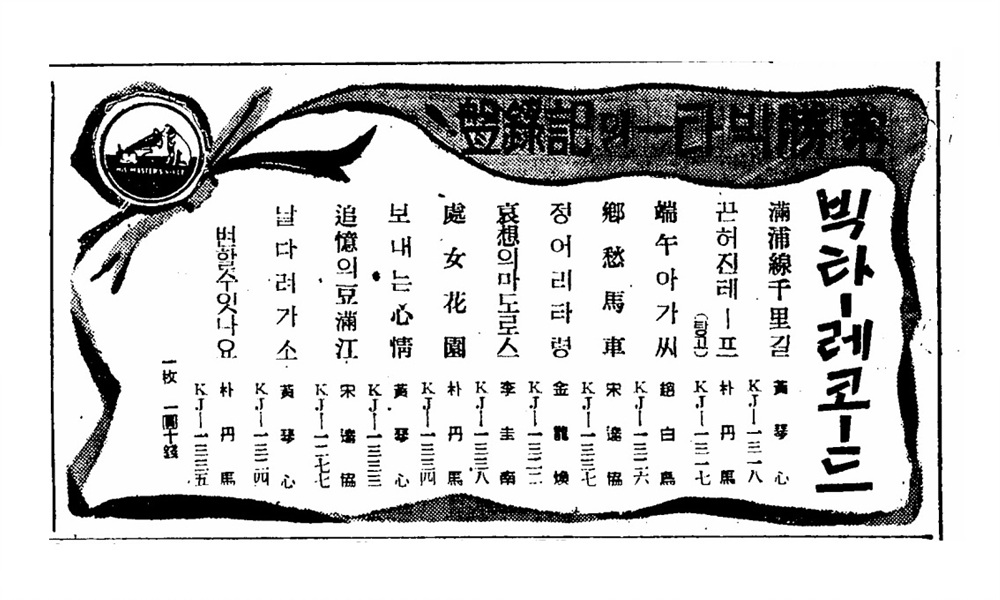 HIS MASTER'S VOICE
勝빅타ー의記錄盤
빅타ー레코ー드
滿浦線千里길 黃琴心
KJー一三一八
끈허진테ー프(탕고) 朴丹馬
KJー一三一七
端午아가씨 趙白鳥
KJー一三二六
鄕愁馬車 宋達協
KJー一三三七
정어리타령 金龍煥
KJー一三二二
哀想의마도로스 李圭南
KJー一三三八
處女花園 朴丹馬
KJー一三三四
보내는心情 黃琴心
KJー一三三三
追憶의豆滿江 宋達協
KJー一二七七
날다려가소 黃琴心
KJー一三二四
변할수잇나요 朴丹馬
KJー一三三五
一枚 一圓十錢